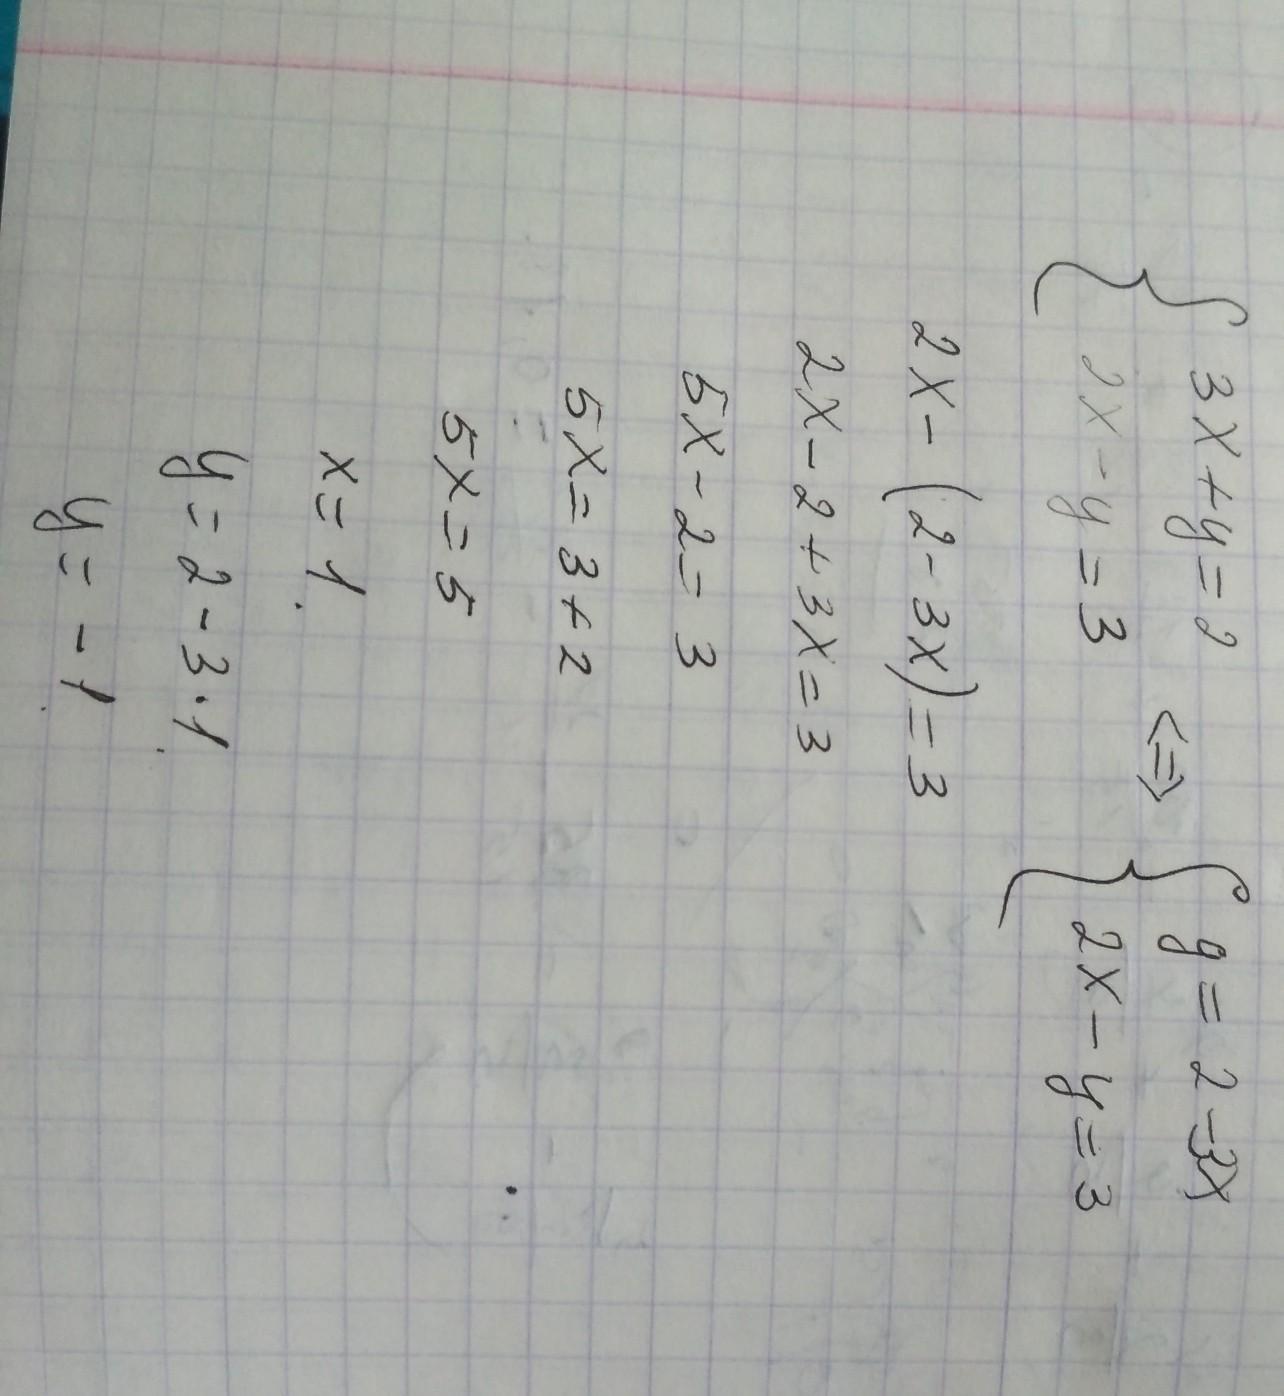 { 3x+y=2 <=> { y=2-3x
2x-y=3 2x-y=3
2x-(2-3x)=3
2x-2+3x=3
5x-2=3
5x=3+2
5x=5
x=1.
y=2-3·1.
y=-1.